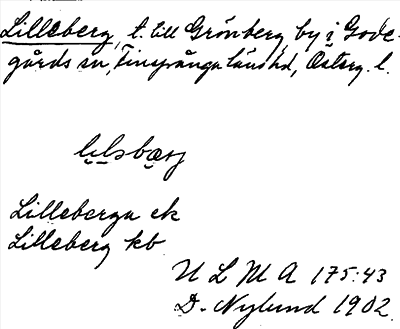 Lilleberg, t. till Grönberg, by i Gode-
gårds sn, Finspånga läns hd, Österg. l.
Lilleberga ek
Lilleberg kb
U L M A 175:43
D. Nylund 1902.